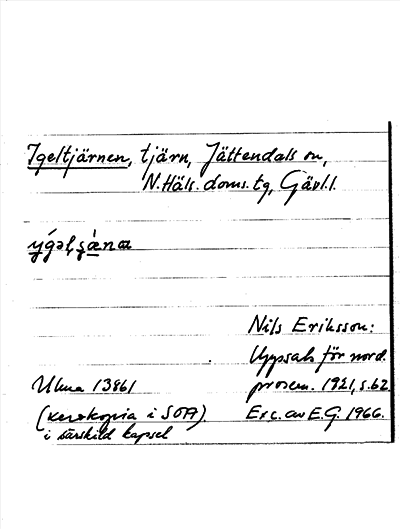 Igeltjärnen, tjärn, Jättendals sn,
N. Häls. doms. tg, Gävl. l.
Nils Eriksson:
Uppsats för nord.
prosem. 1921, s. 62.
Ulma 13861
(xerokopia i SOFI).
i särskild kapsel
Exc. av E.G. 1966.